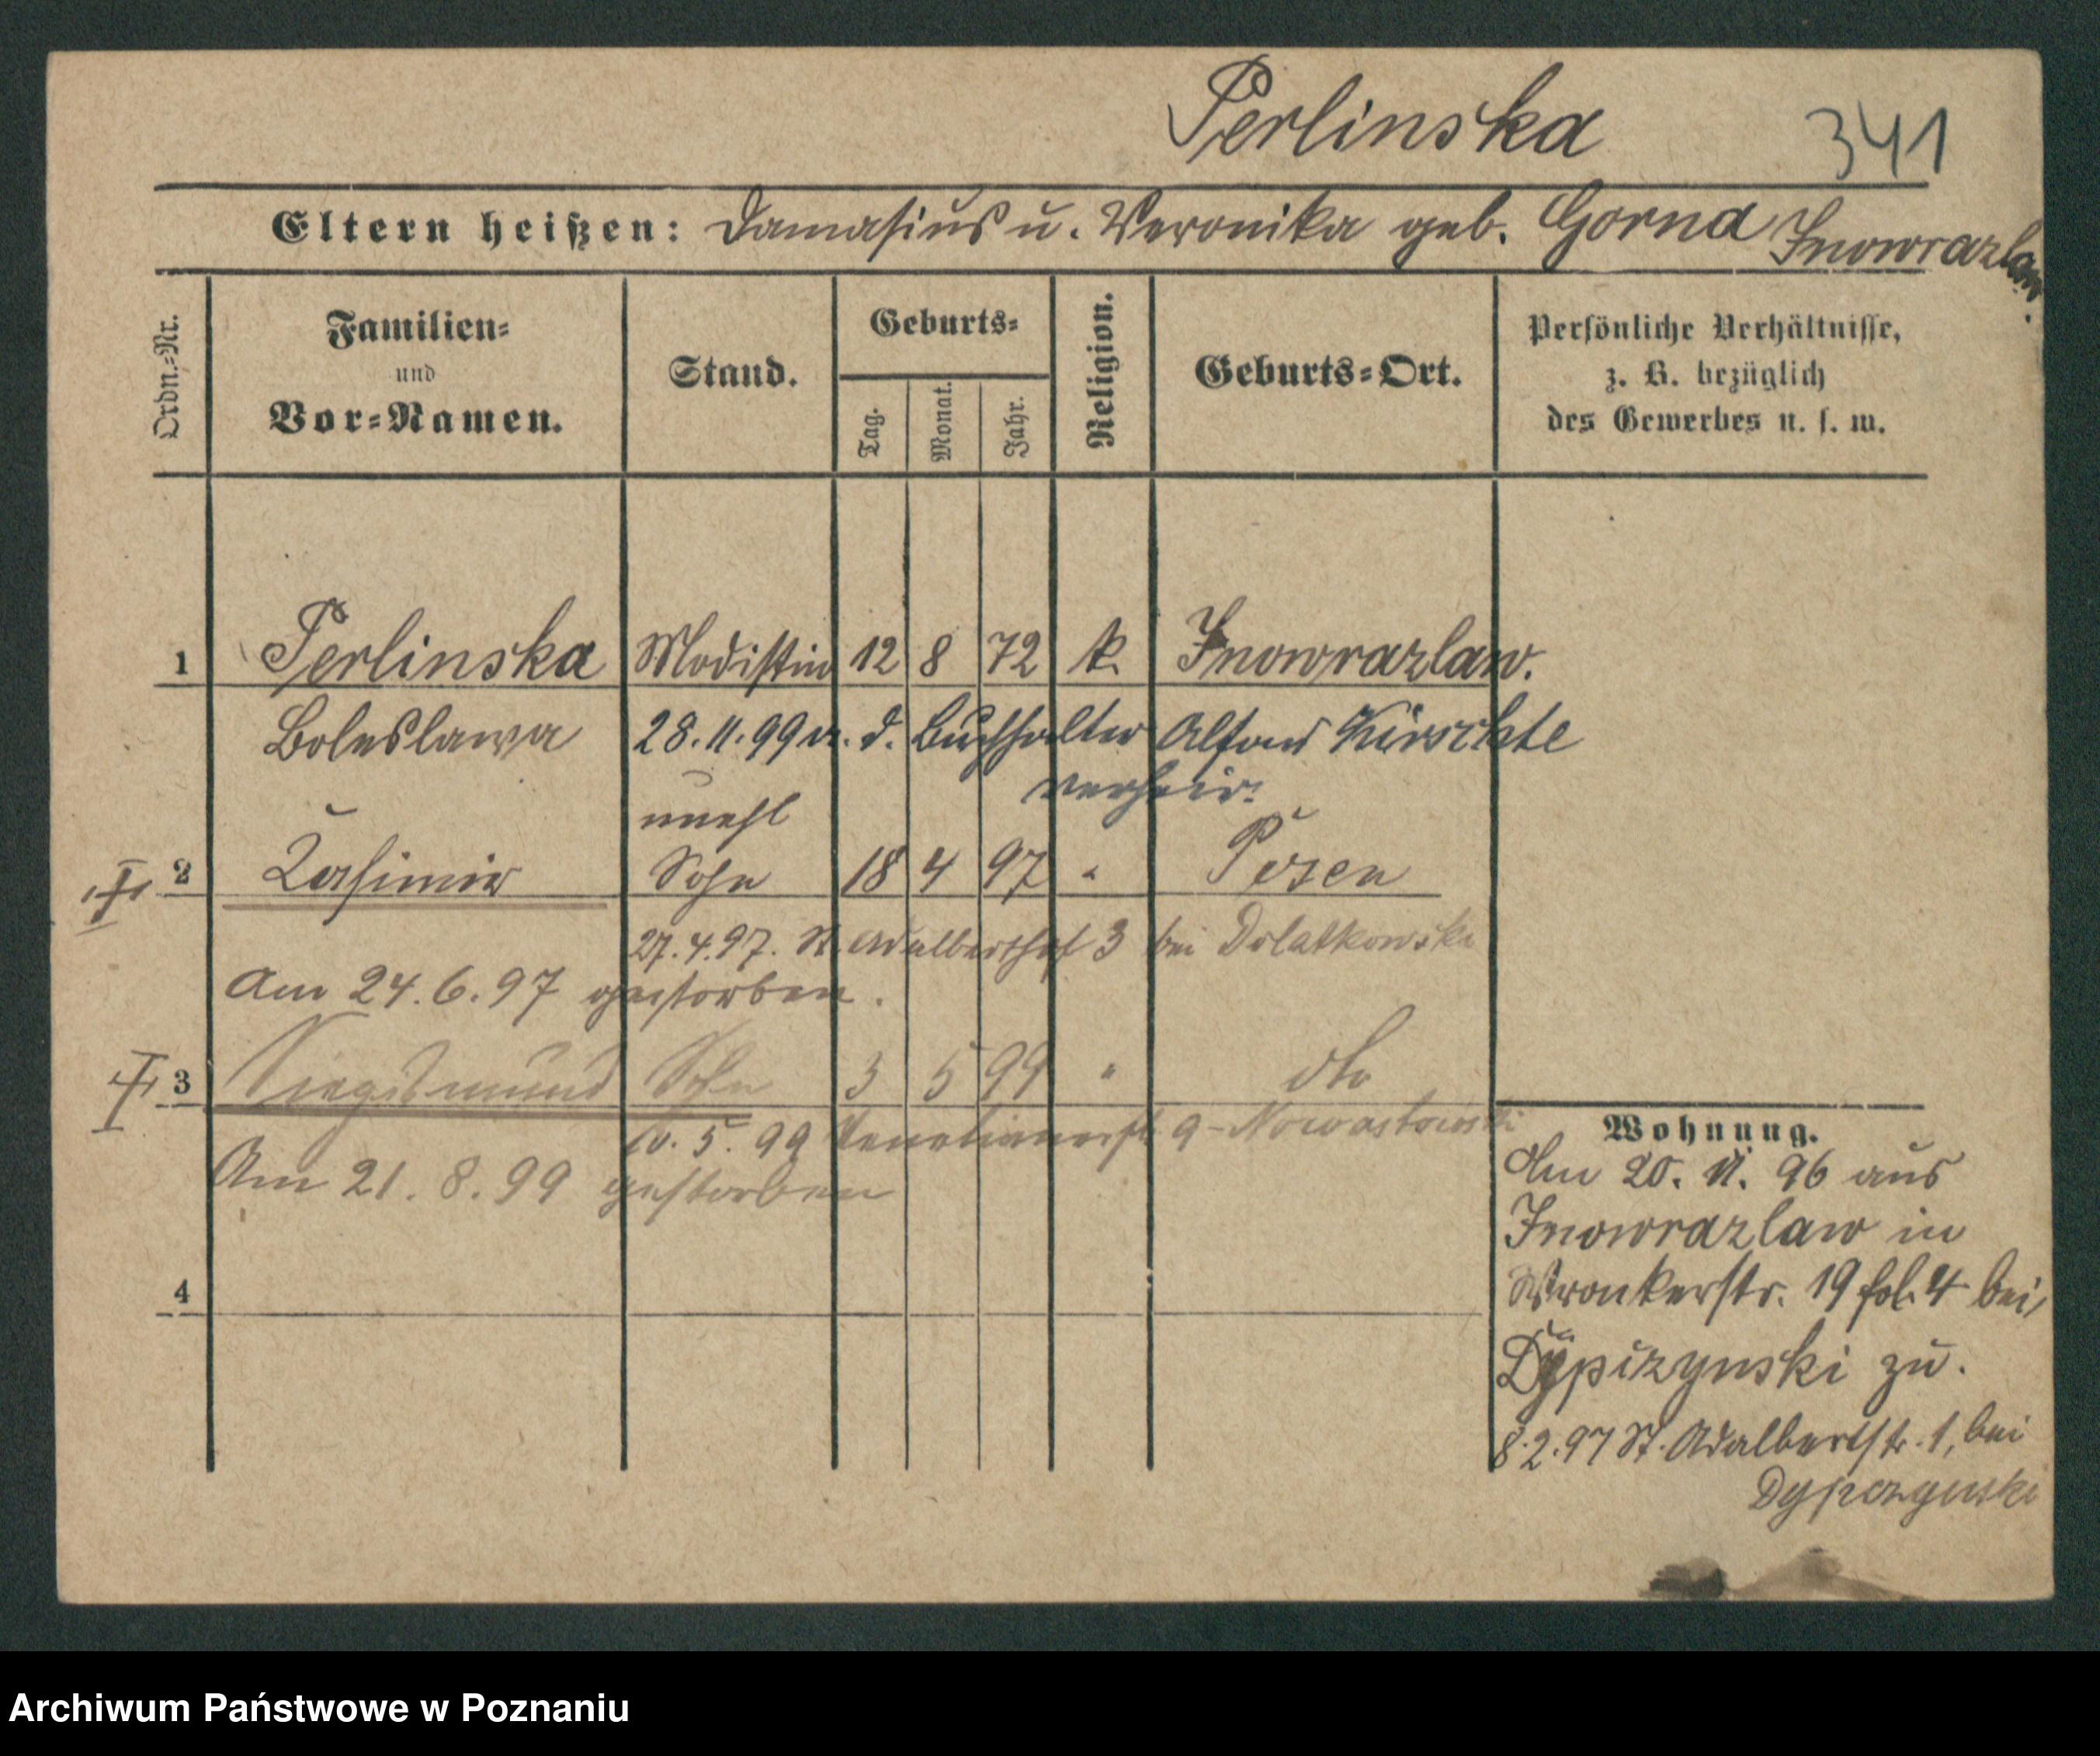 Perlinska 341
Eltern heißen: Damasius u. Veronika geb. Gorna Inowrazlaw.
Ordn.-Nr.
Familien-
und
Vor-Namen.
Stand.
Geburts-
Tag.
Monat.
Jahr.
Religion.
Geburts-Ort.
Persönliche Verhältnisse,
z. B. bezüglich
des Gewerbes u. s. w.
1 Perlinska Modistin 12 8 72 k. Inowrazlaw.
Boleslawa 28.11.99 m. d. Buchhalter Alfons
verheir.
unehl
2 Kasimir Sohn 18 4 97 " Posen
27.4.97. St. Adalberthof 3 bei Dolatkowski
Am 24.6.97 gestorben.
3 Siegismund Sohn 3 5 99 " dto
10. 5. 99 Venetianerstr. 9 -
Am 21. 8. 99 gestorben
4
Wohnung.
Am 20. 11. 96 aus
Inowrazlaw in
Wronkerstr. 19 fol. 4 bei
zu.
8.2.97 St. Adalbertstr. 1, bei
Archiwum Państwowe w Poznaniu